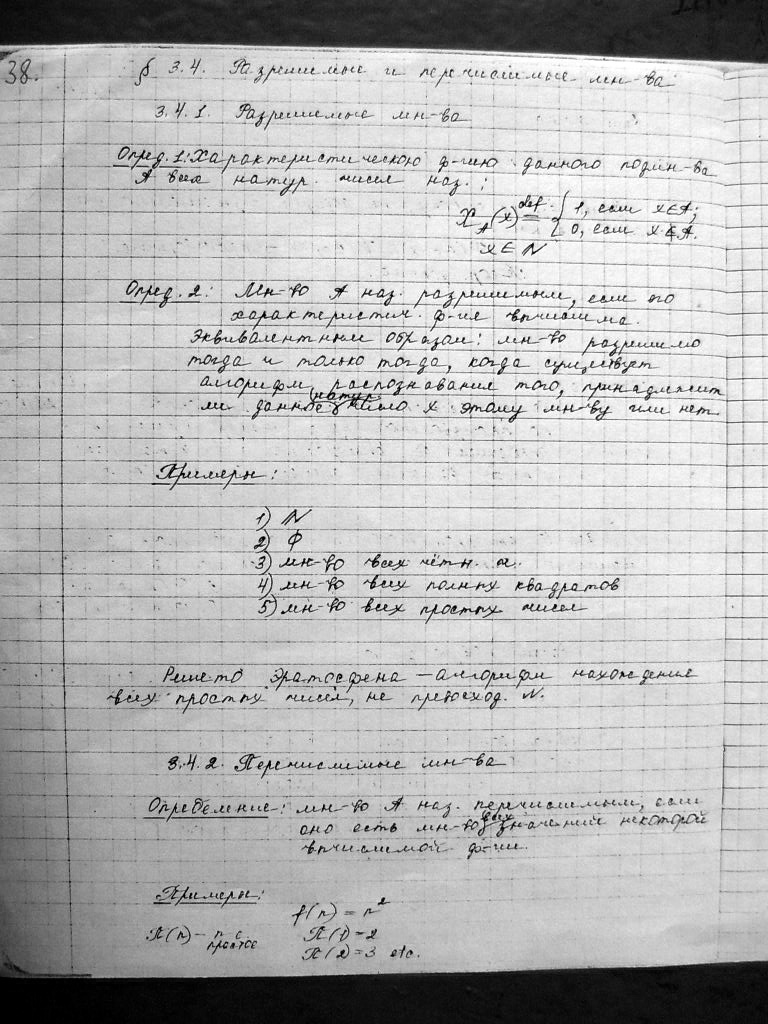 38.
§ 3.4. Разрешимые и перечислимые мн-ва
3.4.1. Разрешимые мн-ва
Опред. 1: Характеристической ф-гию данного подмн-ва
A всех натур. чисел наз.:
X_A(x) def= { 1, если x∈A;
0, если x∉A.
x∈N
Опред. 2: Мн-во A наз. разрешимым, если его
характеристич. ф-ия вычислима.
Эквивалентным образом: мн-во разрешимо
тогда и только тогда, когда существует
алгорифм, распознавания того, принадлежит
ли данное натур. число x этому мн-ву или нет
Примеры:
1) N
2) Ф
3) мн-во всех чётн. ч.
4) мн-во всех полных квадратов
5) мн-во всех простых чисел
Решето Эратосфена — алгорифм нахождения
всех простых чисел, не превосход. N.
3.4.2. Перечислимые мн-ва
Определение: мн-во A наз. перечислимым, если
оно есть мн-во всех значений некоторой
вычислимой ф-ии.
Примеры:
f(n) = n²
П(n) — n-е простое
П(1)=2
П(2)=3 etc.